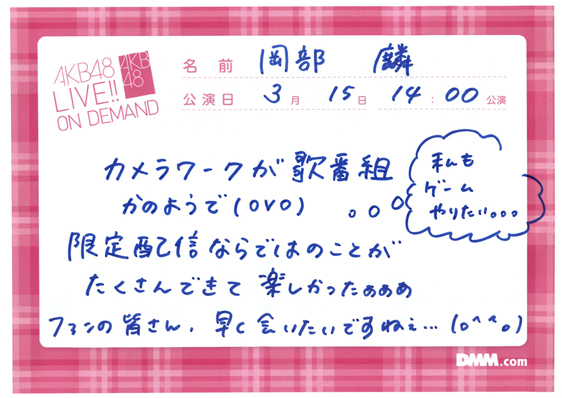 AKB48
LIVE!!
ON DEMAND
AKB
48
名前 岡部 麟
公演日 3月 15日 14:00公演
カメラワークが歌番組
かのようで(OVO)
私も
ゲーム
やりたい。。。
限定配信ならではのことが
たくさんできて 楽しかったぁぁぁ
ファンの皆さん、早く会いたいですねぇ…(o^^o)
DMM.com